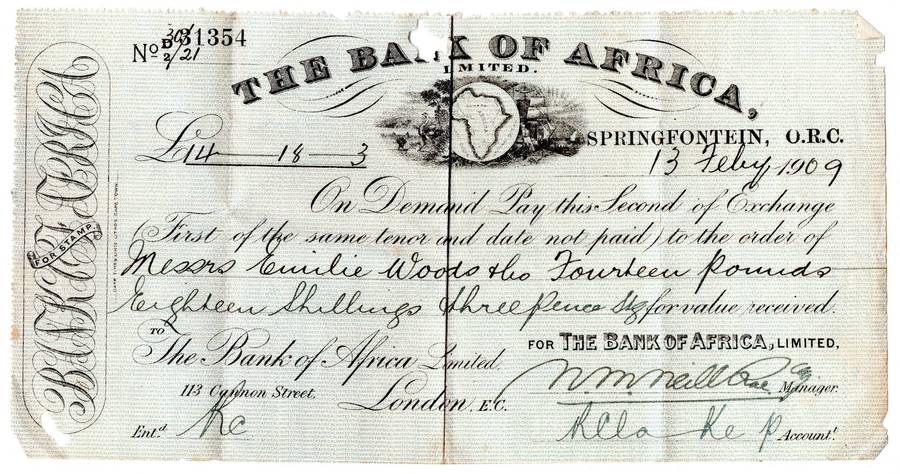 No D 31354
30/21
THE BANK OF AFRICA,
LIMITED.
SPRINGFONTEIN, O.R.C.
£14 — 18 — 3
13 Feby 1909
On Demand Pay this Second of Exchange
(First of the same tenor and date not paid) to the order of
Messrs Emilie Woods & Co Fourteen Pounds
Eighteen Shillings three pence Stg for value received.
TO
The Bank of Africa Limited.
113 Cannon Street.
London, E.C.
FOR THE BANK OF AFRICA, LIMITED,
Manager.
Ent.d
Account.t
BANK OF AFRICA
FOR STAMP.